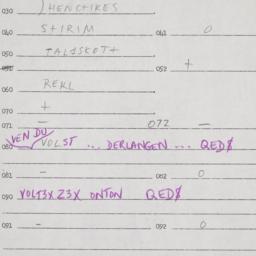 030 JHENCHKES
040 STRIM 041 0
050 TALJSKET+
051 052 +
060 REKL
070 +
071 — 072 —
VEN DU
080 VOLST ... DERLANGEN ... QED$
081 — 082 0
090 VOLT3X Z3X ONTON QED$
091 - 092 0